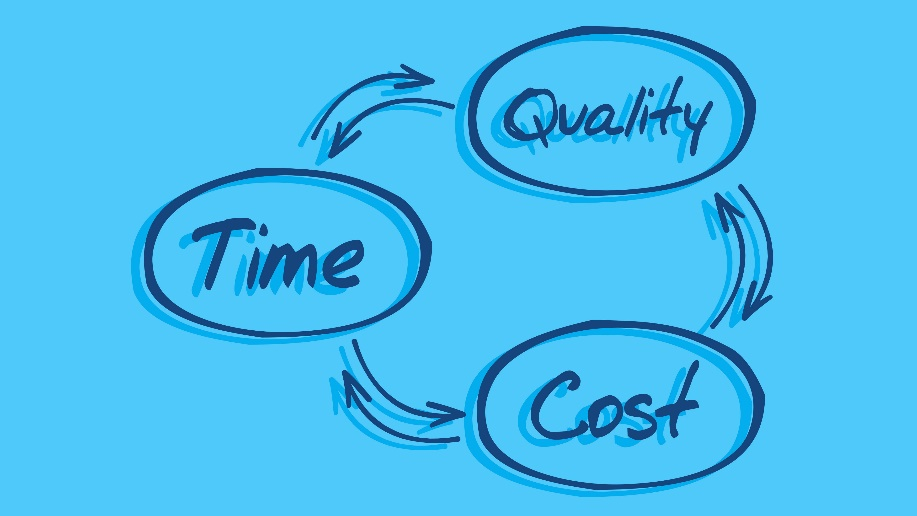 Quality
Time
Cost